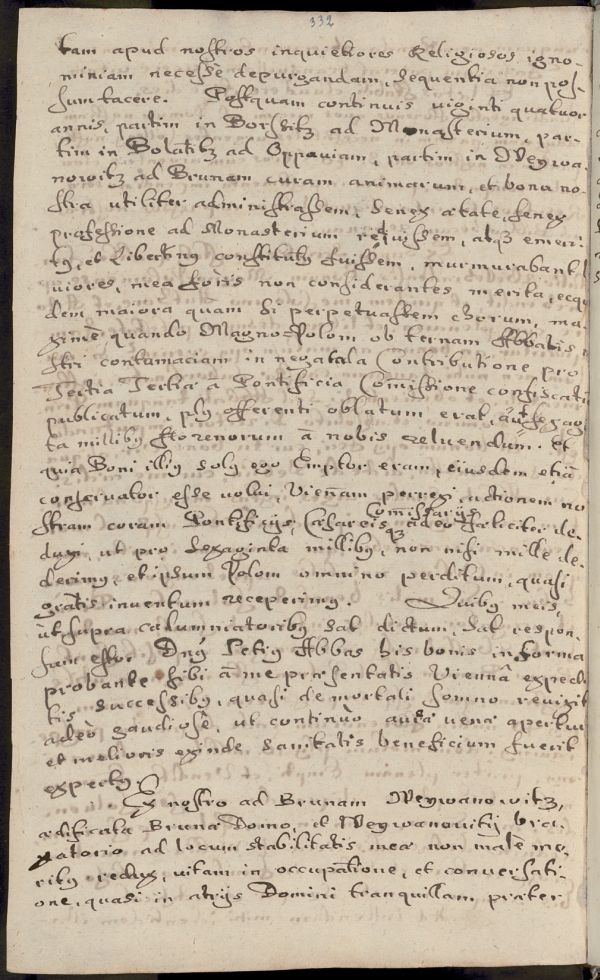 332
tam apud nostros inquietiores Religiosos igno-
miniam necesse depurgandam, sequentia non pos-
sum tacere. Postquam continuis viginti quatuor
annis, partim in Borssitz ad Monasterium, par-
tim in Bolatitz ad Oppaviam, partim in Neywa-
nowitz ad Brunam curam animarum, et bona no-
stra utiliter administrassem, senex ætate, senex
professione ad Monasterium redijssem, atq3 emeri-
tq, et Libertinq constitutq fuissem, murmurabant
viores, mea foris non considerantes merita, ecqui
dem maiora quàm si perpetuassem chorum, ma-
ximè quando Magno-Polom ob ternam Abbatis
stri contumaciam in negata la Contributione pro
Tertia Tertiæ à Pontificia Comissione confiscatū
publicatum, plq offerenti oblatum erat, aut sexagin
ta millibq florenorum à nobis reluendum. Et
quia Boni illiq solq ego Emptor eram, eiusdem etiā
conservator esse volui, Vieñam perrexi, actionem no
stram coram Pontificijs, Cæsareisq3 Comissarijs adeò feliciter de-
duxi, ut pro sexaginta millibq, non nisi mille de-
derimq, et ipsum Polom omnino perditum, quasi
gratis inventum receperimq. Quibq meis,
ut supra calumniatoribq sat dictum, sat respon-
sum esto. Dnq Petrq Abbas his bonis in forma
probante sibi à me præsentatis Viennâ expedi
tis successibq, quasi de mortali somno revixit
adeò gaudiosè, ut continuò aurea vena apertur
et melioris exinde sanitatis beneficium fuerit
expertq.
Ex nostro ad Brunam Neywanowitz,
ædificata Brunæ Domo, et Neywanovitij
ad locum stabilitatis meæ non malè me-
ritq redux, vitam in occupatione, et conversati-
one, quasi in atrijs Domini tranquillam, præter